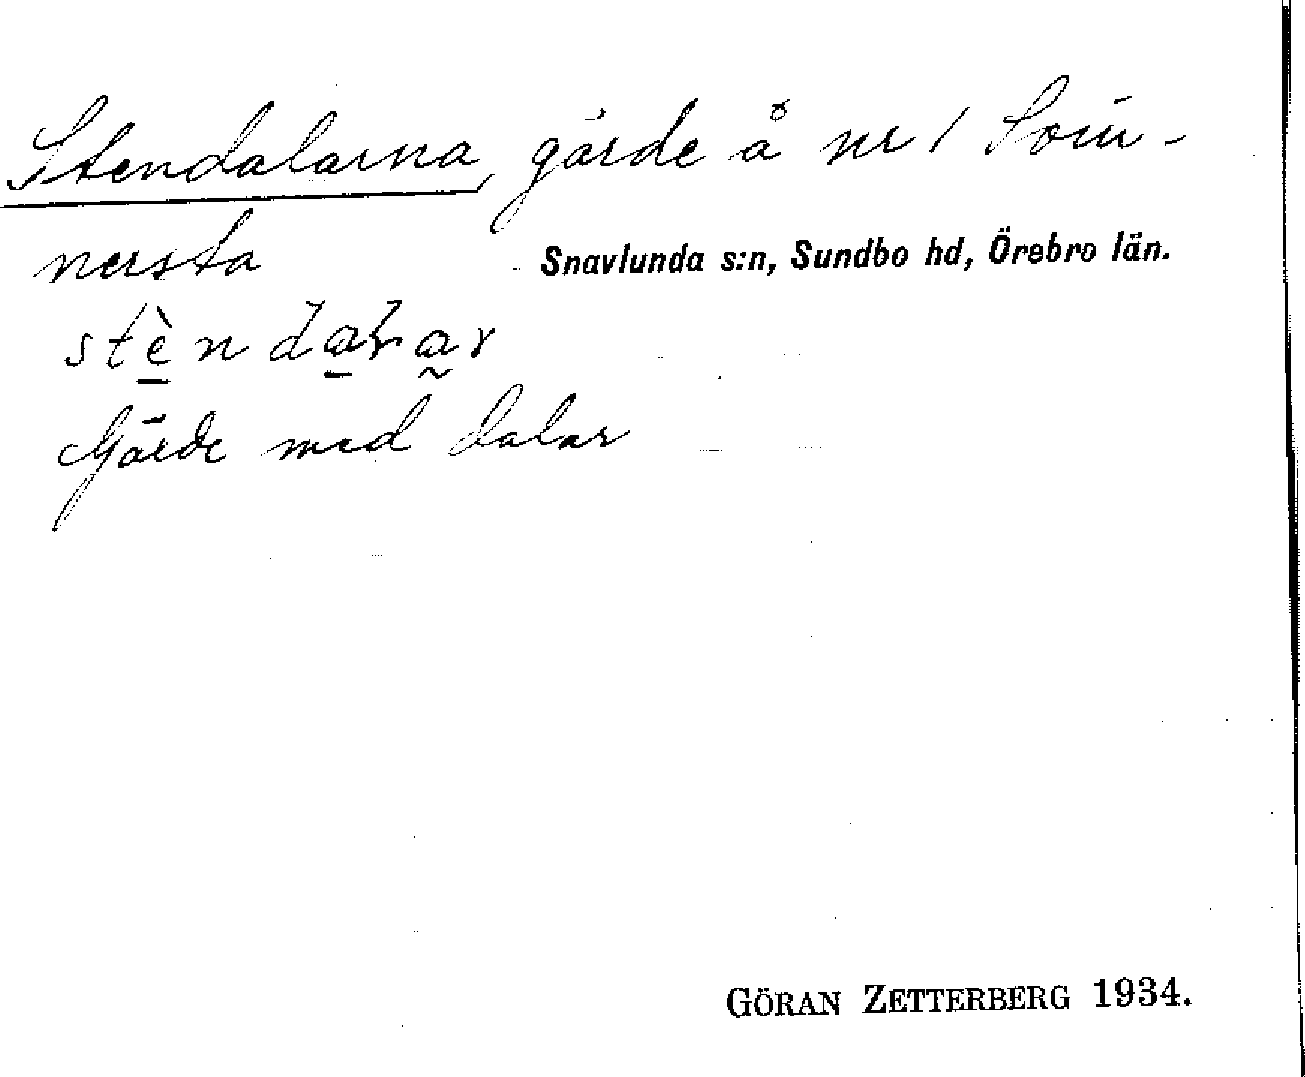 Stendalarna, gärde å nr 1 Som̄-
nersta
Snavlunda s:n, Sundbo hd, Örebro län.
stèndaɫar
Gärde med dalar
GÖRAN ZETTERBERG 1934.